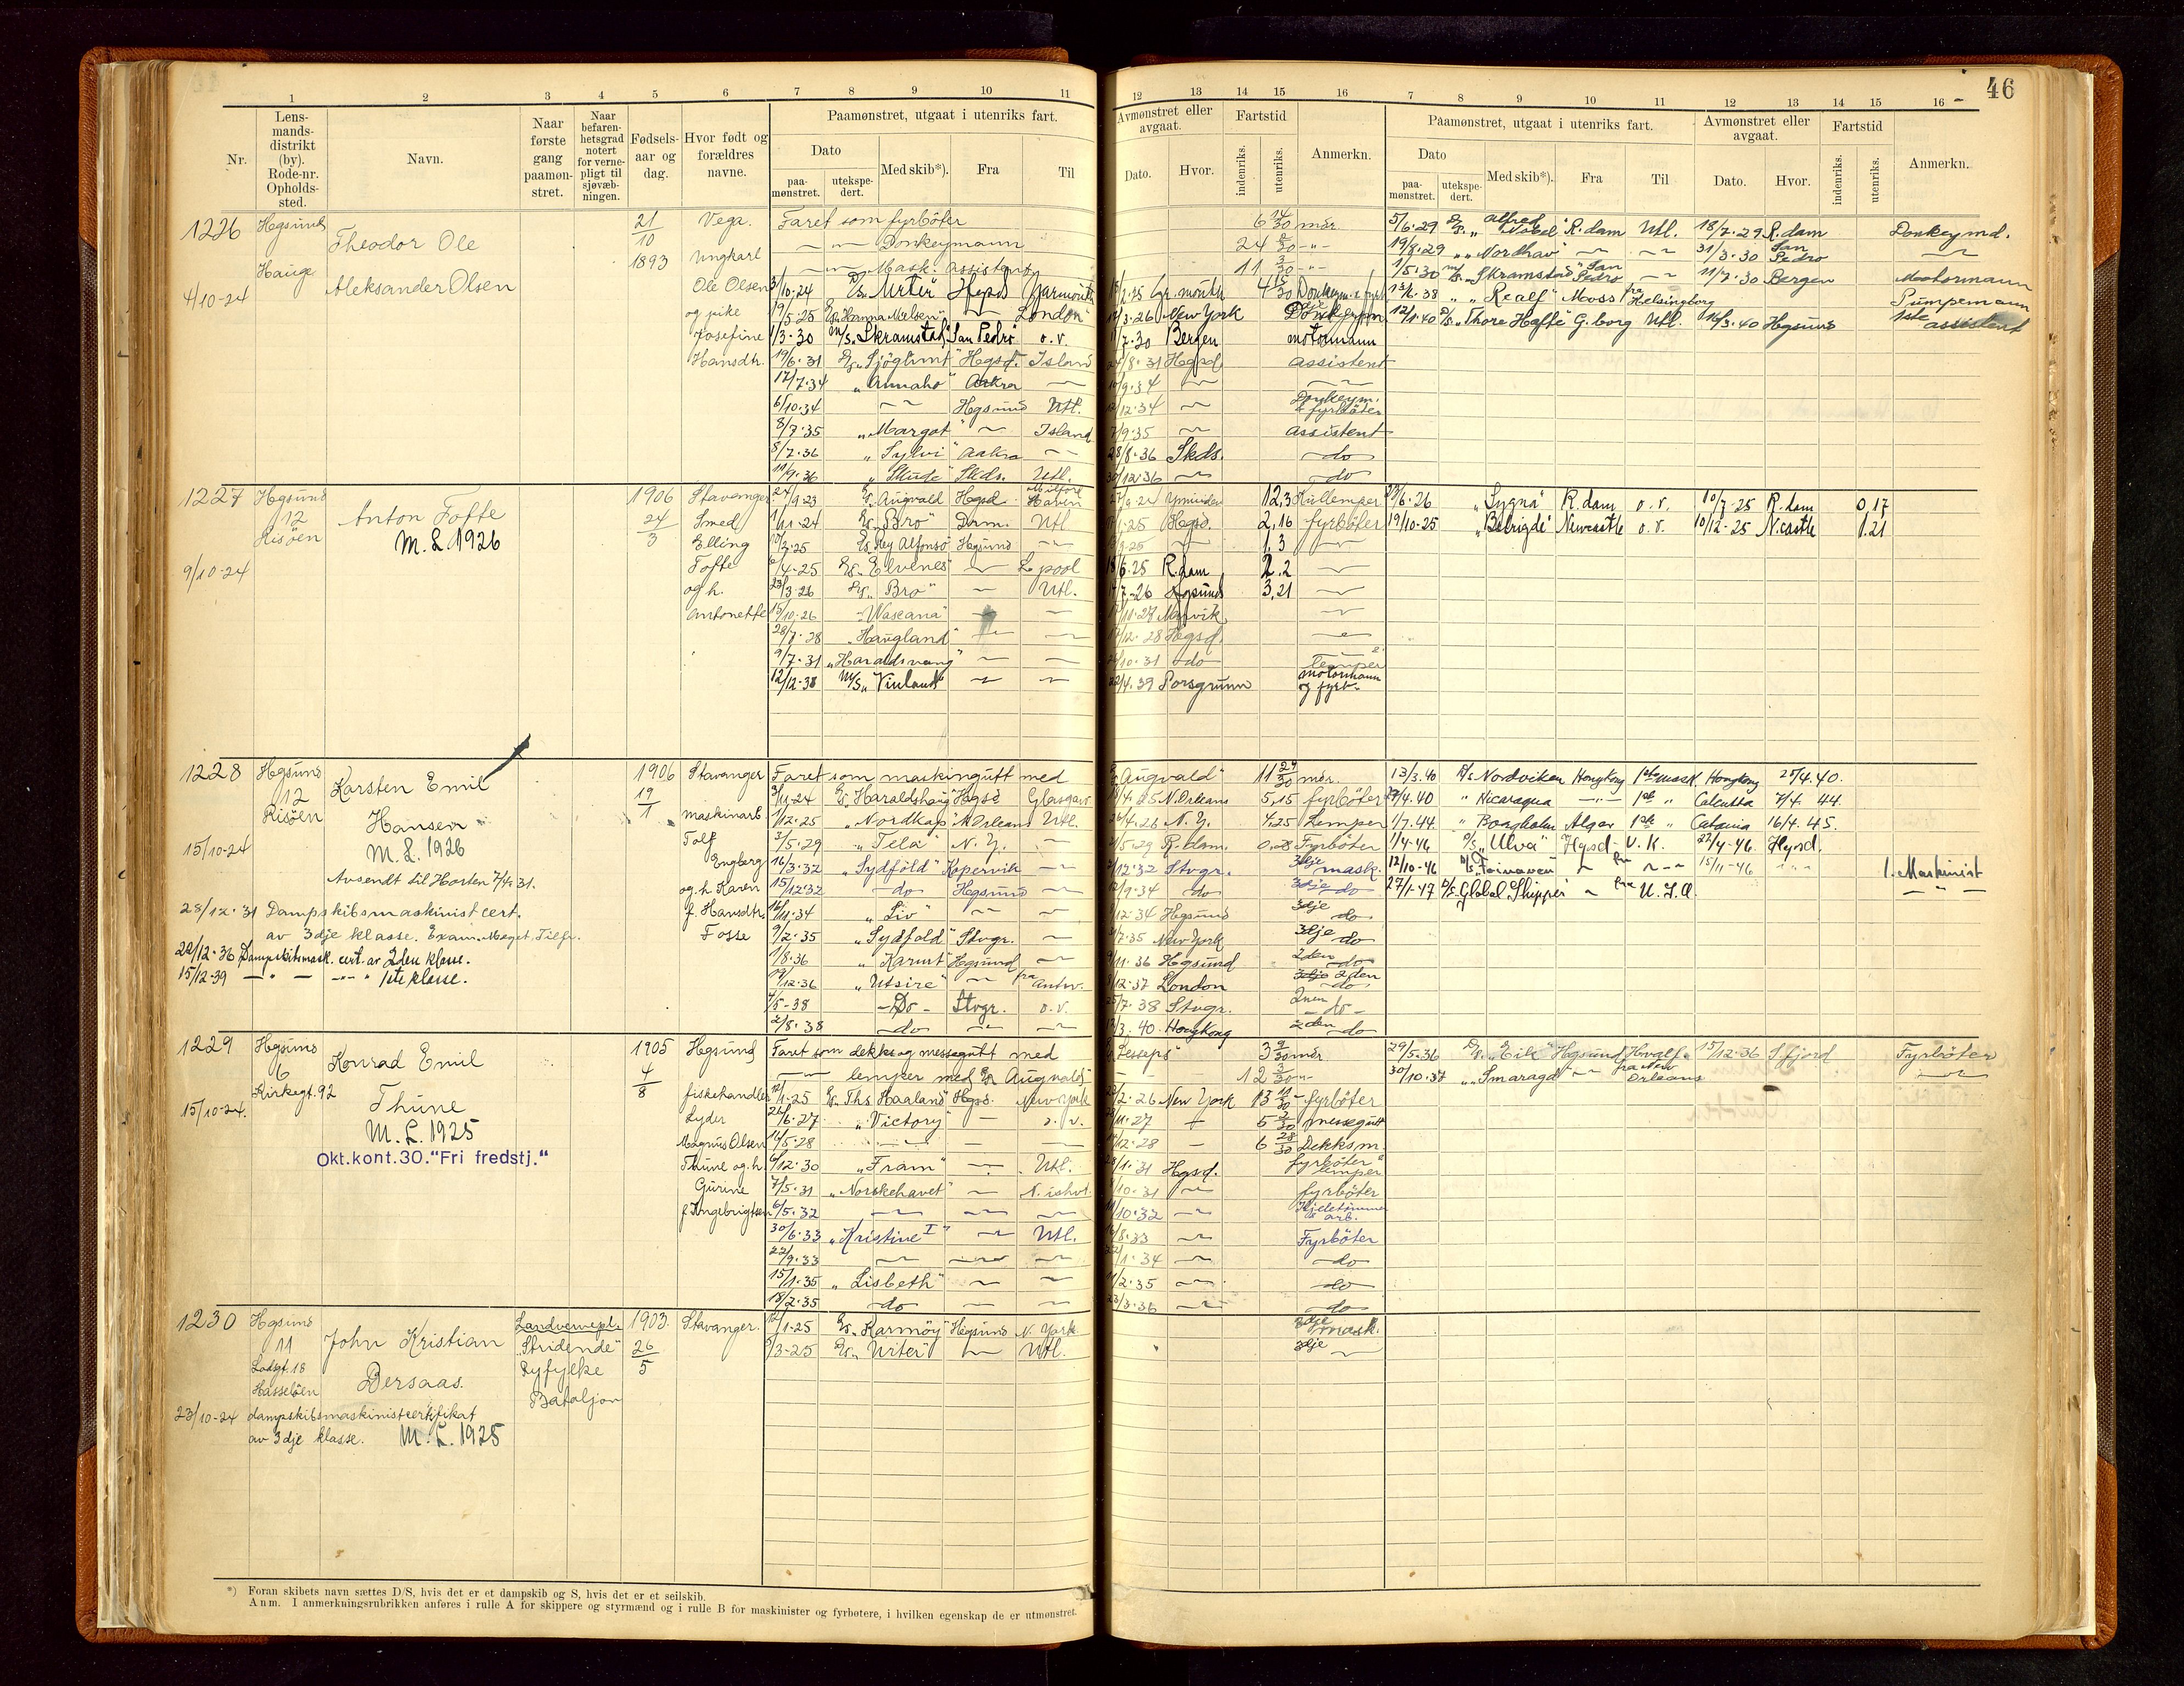 46
1 2 3 4 5 6 7 8 9 10 11 12 13 14 15 16 7 8 9 10 11 12 13 14 15 16
Nr.
Lens-
mands-
distrikt
(by).
Rode-nr.
Opholds-
sted.
Navn.
Naar
første
gang
paamøn-
stret.
Naar
befaren-
hetsgrad
notert
for verne-
pligt til
sjøvæb-
ningen.
Fødsels-
aar og
dag.
Hvor født og
forældres
navne.
Paamønstret, utgaat i utenriks fart.
Dato
paa-
mønstret.
utekspe-
dert.
Med skib*).
Fra
Til
Avmønstret eller
avgaat.
Dato.
Hvor.
Fartstid
indenriks.
utenriks.
Anmerkn.
Paamønstret, utgaat i utenriks fart.
Dato
paa-
mønstret.
utekspe-
dert.
Med skib*).
Fra
Til
Avmønstret eller
avgaat.
Dato.
Hvor.
Fartstid
indenriks.
utenriks.
Anmerkn.
1226
Hgsund
Hauge
4/10-24
Theodor Ole
Aleksander Olsen
21/10
1893
Vega.
Ungkarl
Ole Olsen
og pike
Josefine
Hansdtr.
Faret som fyrbøter 6 14/30 mdr
Donkeymann 24 /30
Mask. Assistent 11 3/30
3/10-24 D/s "Urter" Hgsd Yarmouth
19/5-25 "Hanna Nielsen" London 3-26 New York Donkeym
1/3-30 M/S. "Skramstad" San Pedro o.v. 7-30 Bergen motormann
19/6-31 "Sjøglimt" Hgsd. Island 8-31 Hgsd assistent
17/7-34 "Annaho" Aakra 9-34
6/10-34 Hgsund Utl. 12-34 Donkeym. & fyrbøter
8/7-35 "Margot" Island 9-35 assistent
8/7-36 "Sylvi" Aakra 28/8-36 Skds. do
11/9-36 "Skude" Skds. Utl. 12-36 do
5/6-29 "Alfred Nobel" R.dam Utl. 18/7-29 R.dam Donkeymd.
19/8-29 "Nordhav" 31/3-30 San Pedro
1/5-30 M/s "Skramstad" San Pedro 11/7-30 Bergen Motormann
13/6-38 "Realf" Moss fra Helsingborg Pumpemann
12/1-40 D/s "Thore Hafte" G.borg Utl. 16/3-40 Hgsund 1ste assistent
1227
Hgsund
12
Risøen
9/10-24
Anton Tofte
M.L. 1926
1906
24/3
Stavanger
Smed
Elling
Tofte
og h.
Antonette
24/9-23 Augvald Hgsd Milford Haven Ymuiden 12,3 Kullemper
1/11-24 "Bro" Drm. Utl 1-25 Hgsd. 2,16 fyrbøter
/3-25 "Rey Alfonso" Hgsund 1,3
/4-25 "Elvenes" L.pool 6-25 R.dam 2.2
23/3-26 "Bro" Utl. 7-26 Hgsund 3,21
15/10-26 "Wascana" Narvik
28/7-28 "Haugland" 12-28 Hgsd.
9/7-31 "Haraldsvang" 10-31 do lemper
12/12-38 M/S. "Vinland" 22/4-39 Porsgrunn motormann og fyrb.
23/6-26 "Sygna" R.dam o.v. 10/7-25 R.dam 0,17
19/10-25 "Belridge" Newcastle o.v. 10/12-25 N.castle 1.21
1228
Hgsund
12
Risøen
15/10-24
Karsten Emil
Hansen
M.L. 1926
Avsendt til Horten 7/4-31.
28/12-31 Dampskibsmaskinistcert.
av 3dje klasse. Exam. Meget Tilfr.
29/12-36 Dampskibsmask. cert. av 2den klasse.
15/12-39 1ste klasse.
1906
19/1
Stavanger
maskinarb.
Tolf
Engberg
og h. Karen
f. Hansdtr.
Fosse
Faret som maskingutt med "Augvald" 11 29/30 mdr.
3/11-24 "Haraldshaug" Hgsd Glasgow N.Orleans 5,15 fyrbøter
/12-25 "Nordkap" N.Orleans Utl. 4-26 N.Y. 4,25 Lemper
3/5-29 "Tela" N.Y. 5-29 R.dam. 0,28 Fyrbøter
16/3-32 "Sydfold" Kopervik 12-32 Stvgr. 3dje mask.
15/12-32 do Hgsund 9-34 do 3dje do
16/11-34 "Liv" 12-34 Hgsund 3dje do
9/2-35 "Sydfold" Stvgr. 7-35 New York 3dje do
1/8-36 "Karmt" Hgsund 11-36 Hgsund 2den do
/12-36 "Utsire" fra Antw. 12-37 London 2den do
4/5-38 Do Stvgr. o.v. 7-38 Stvgr. 2nen do
2/8-38 do 3-40 HongKong 2den do
13/3-40 D/s Nordviken HongKong 1ste mask. Hongkong 25/4-40.
4-40 " Nicaragua 1ste " Calcutta 7/4 44.
1/7-44. " Borgholm Alger 1ste " Catania 16/4-45.
1/4-46 D/s "Ulva" Hgsd. U.K. 27/4-46 Hgsd.
12/10-46 fra 15/11-46 1. Maskinist
27/1-47 D/s Global Shipper fra U.S.A.
1229
Hgsund
6
Kirkegt. 92
15/10-24.
Konrad Emil
Thune
M.L. 1925
Okt.kont.30."Fri fredstj."
1905
4/8
Hgsund
fiskehandler
Lyder
Magnus Olsen
Thune og h.
Gurine
f. Ingebrigtsen
Faret som dekks og messegutt med "Lesseps" 3 9/30 mdr
lemper med "Augvald" 12 3/30
/1-25 "Ths Haaland" Hgsd. New York 2-26 New York 13 11/30 fyrbøter
26/6-27 "Victory" o.v. 11-27 5 /30 messegutt
14/5-28 12-28 6 28/30 Dekksm.
6/12-30 "Fram" Utl. 1-31 Hgsd. fyrbøter & lemper
7/5-31 "Norskehavet" N.ishv. 10-31 fyrbøter
6/5-32 10-32 arb.
30/6-33 "Kristine I" Utl. 8-33 Fyrbøter
22/9-33 1-34 do
15/1-35 "Lisbeth" 2-35 do
18/2-35 do 23/3-36 do
29/5-36 "Eik" Hgsund Hvalf. 15/12-36 S.fjord Fyrbøter
30/10-37 "Smaragd" fra New Orleans
1230
Hgsund
11
Lodsgt. 18
Hasseløen
23/10-24
John Kristian
Bersaas.
dampskibsmaskinistcertifikat
av 3dje klasse. M.L. 1925
Landvernepl.
"Stridende"
Ryfylke
Bataljon
1903.
26/5
Stavanger.
/1-25 "Karmøy" Hgsund N. York. 3dje mask.
/3-25 "Urter" Utl. 3dje
*) Foran skibets navn sættes D/S, hvis det er et dampskib og S, hvis det er et seilskib.
Anm. I anmerkningsrubrikken anføres i rulle A for skippere og styrmænd og i rulle B for maskinister og fyrbøtere, i hvilken egenskap de er utmønstret.